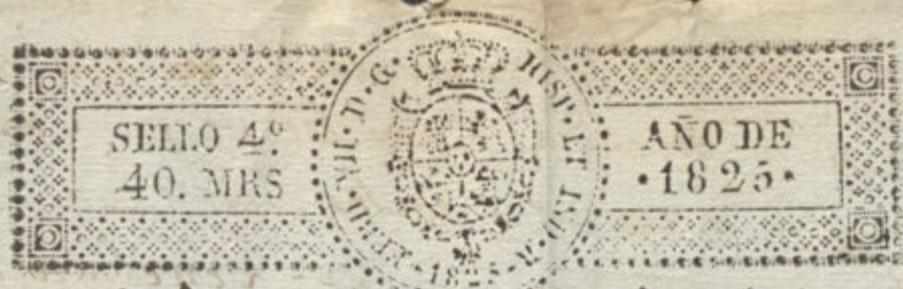 SELLO 4º
40. MRS
FERND·VII·D·G· HISP·ET IND·R· 1825
AÑO DE
·1825·